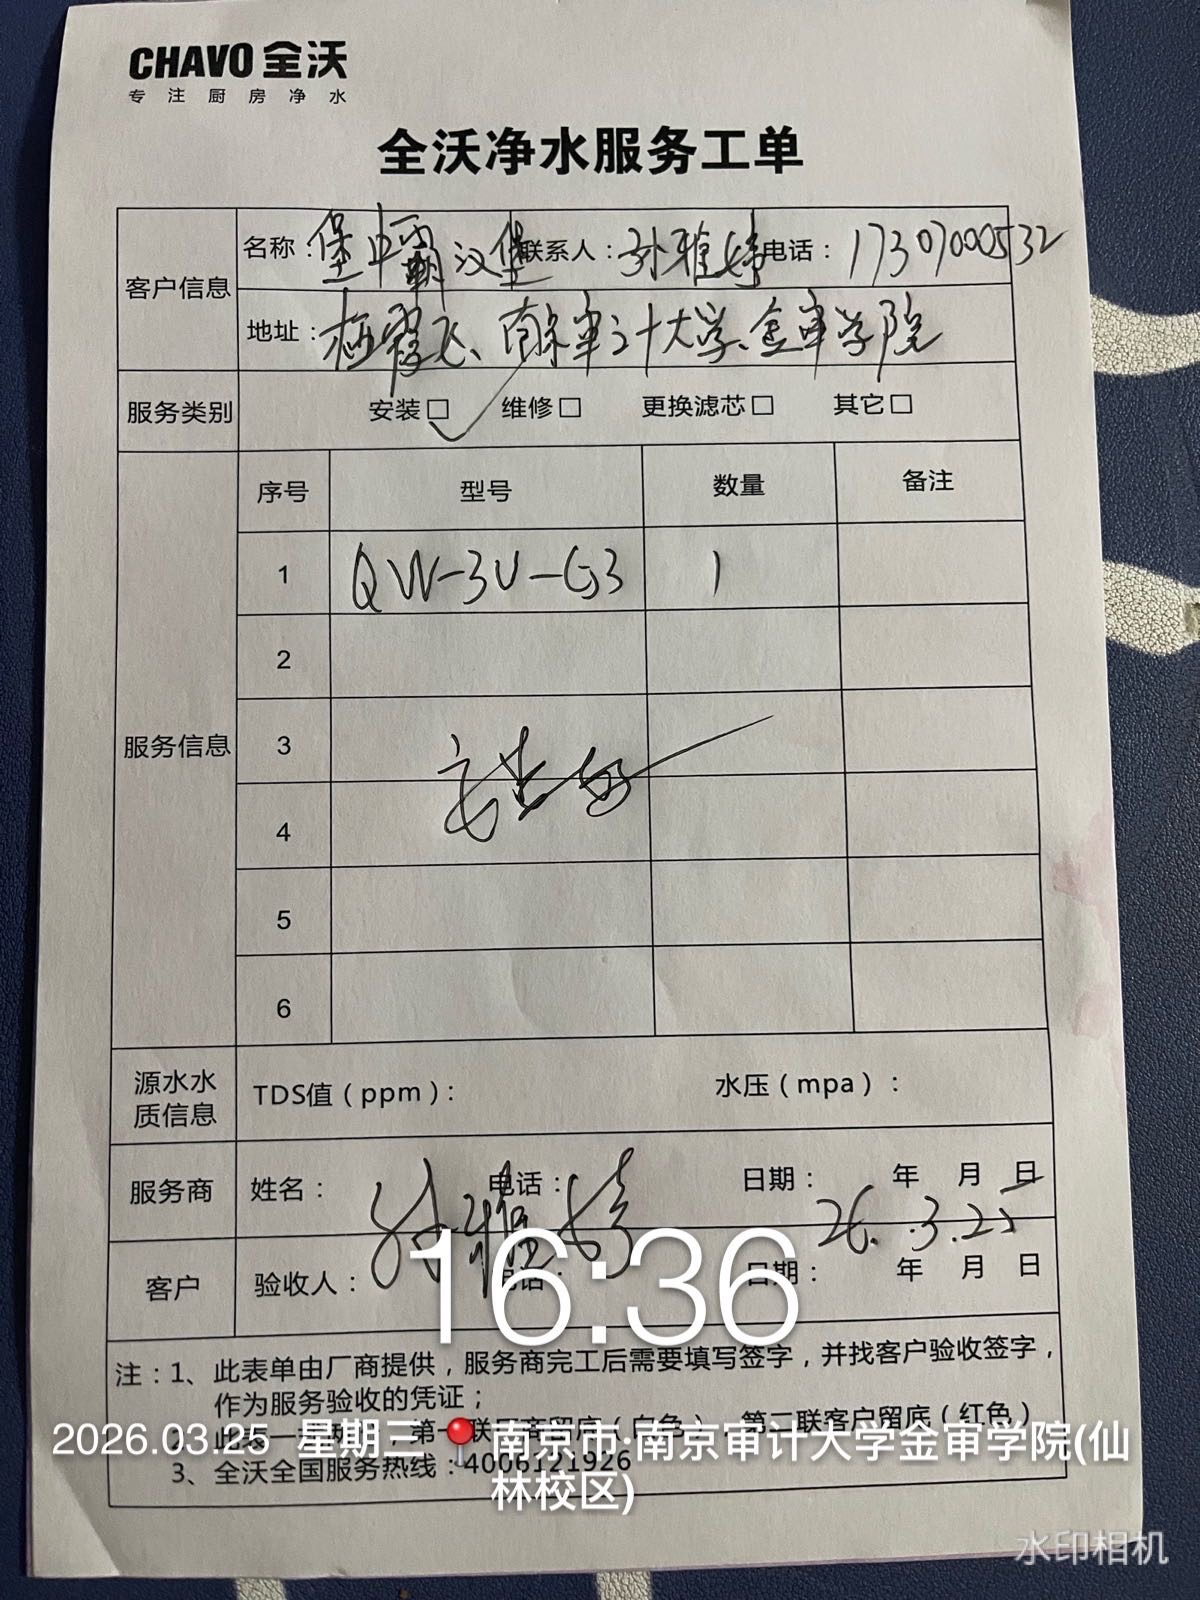 CHAVO 全沃
专注厨房净水
全沃净水服务工单
客户信息
名称：堡中霸汉堡 联系人：孙雅婷 电话：17307000532
地址：栖霞区、南京审计大学金审学院
服务类别 安装□ 维修□ 更换滤芯□ 其它□
服务信息
序号 型号 数量 备注
1 QW-3U-G3 1
2
3
4
5
6
源水水质信息 TDS值（ppm）： 水压（mpa）：
服务商 姓名： 电话： 日期： 年 月 日
26.3.25
客户 验收人：孙雅婷 电话： 日期： 年 月 日
16:36
注：1、此表单由厂商提供，服务商完工后需要填写签字，并找客户验收签字，
作为服务验收的凭证；
2、此表一式两联，第一联厂商留底（白色），第二联客户留底（红色）
3、全沃全国服务热线：4006121926
2026.03.25 星期三 南京市·南京审计大学金审学院(仙
林校区)
水印相机